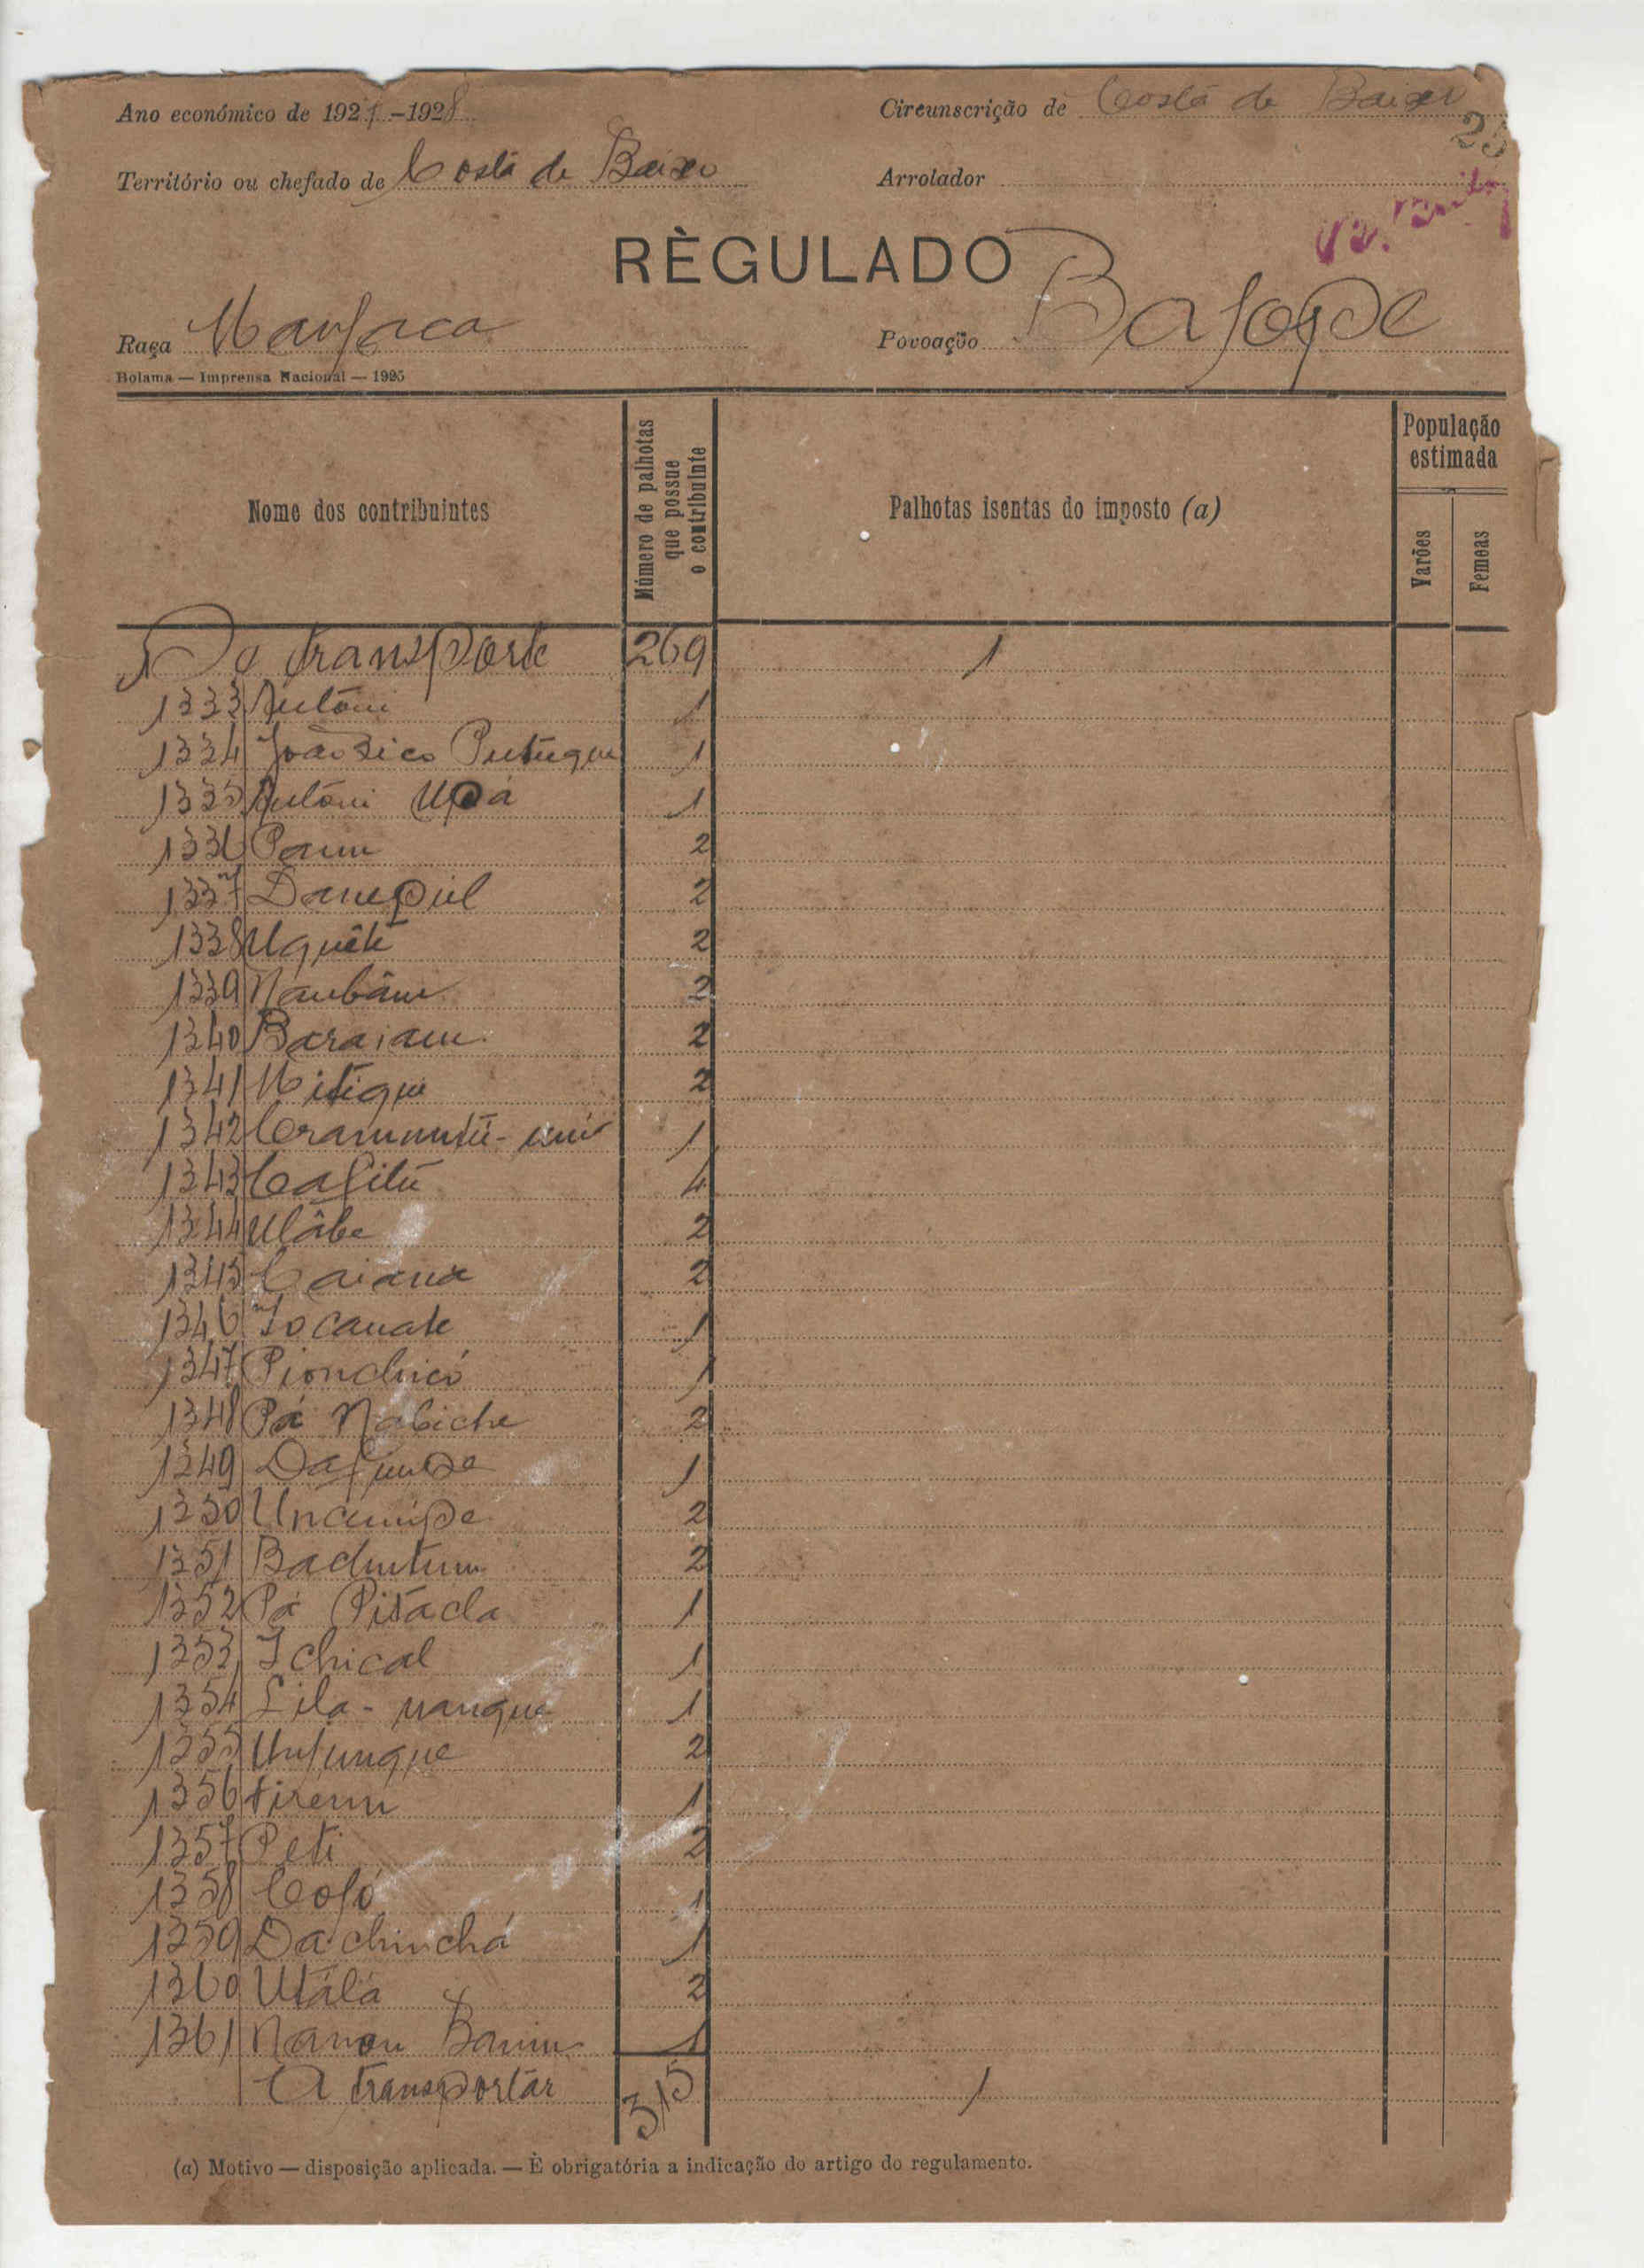 Ano económico de 1927-1928
Circunscrição de Costa de Baixo
25
Território ou chefado de Costa de Baixo
Arrolador
RÈGULADO
Raça Manjaca
Povoação Bajope
Bolama — Imprensa Nacional — 1925
Nome dos contribuintes
Número de palhotas que possue o contribuinte
Palhotas isentas do imposto (a)
População estimada
Varões
Femeas
De transporte 269 1
1333 Antóni 1
1334 João Bico 1
1335 Antóni Upá 1
1336 2
1337 Danepiil 2
1338 Uquêtê 2
1339 Naubâm 2
1340 Baraiam 2
1341 Mitique 2
1342 1
1343 Cafitú 4
1344 Ulâbe 2
1345 Caiana 2
1346 Jocanate 1
1347 Pionchicó 1
1348 Pá Nabiche 2
1349 1
1350 Uncumpe 2
1351 Badintum 2
1352 Pá Pitacla 1
1353 Ichical 1
1354 Lila-nanque 1
1355 Unfunque 2
1356 Firem 1
1357 Peti 2
1358 Cojó 1
1359 Dachinchá 1
1360 Utálá 2
1361 1
A transportar 315 1
(a) Motivo — disposição aplicada. — È obrigatória a indicação do artigo do regulamento.